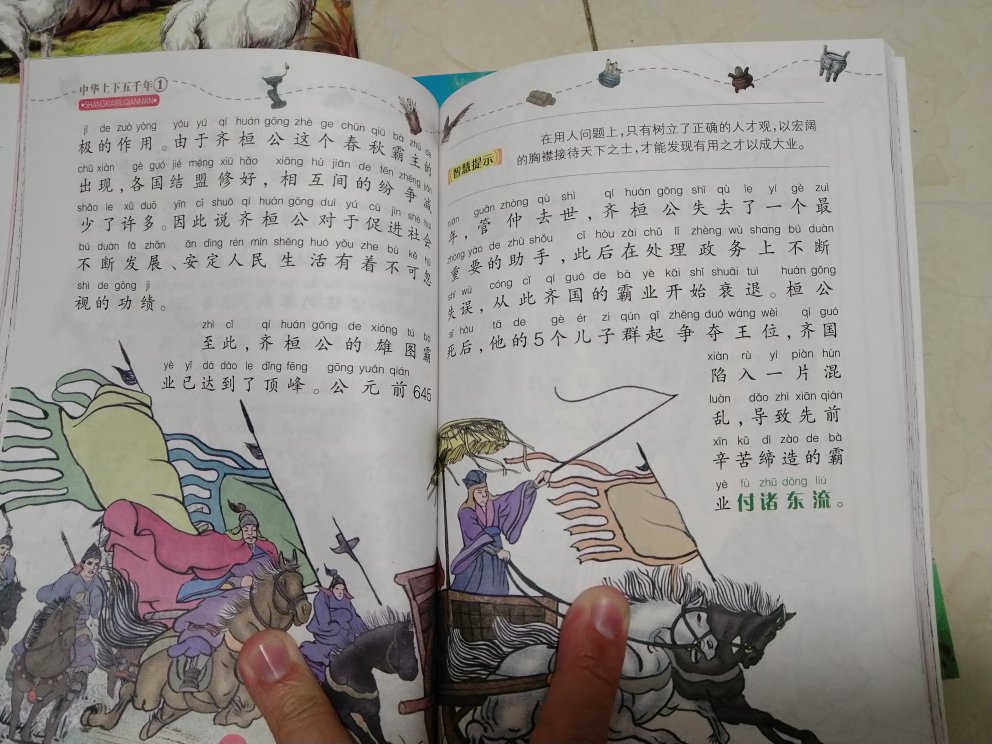 中华上下五千年①
SHANGXIAWUQIANNIAN
jí de zuò yòng yóu yú qí huán gōng zhè ge chūn qiū bà zhǔ de
极的作用。由于齐桓公这个春秋霸主的
chū xiàn gè guó jié méng xiū hǎo xiāng hù jiān de fēn zhēng jiǎn
出现，各国结盟修好，相互间的纷争减
shǎo le xǔ duō yīn cǐ shuō qí huán gōng duì yú cù jìn shè huì
少了许多。因此说齐桓公对于促进社会
bú duàn fā zhǎn ān dìng rén mín shēng huó yǒu zhe bù kě hū
不断发展、安定人民生活有着不可忽
shì de gōng jì
视的功绩。
zhì cǐ qí huán gōng de xióng tú bà
至此，齐桓公的雄图霸
yè yǐ dá dào le dǐng fēng gōng yuán qián
业已达到了顶峰。公元前645
智慧提示
在用人问题上，只有树立了正确的人才观，以宏阔
的胸襟接待天下之士，才能发现有用之才以成大业。
nián guǎn zhòng qù shì qí huán gōng shī qù le yí gè zuì
年，管仲去世，齐桓公失去了一个最
zhòng yào de zhù shǒu cǐ hòu zài chǔ lǐ zhèng wù shang bú duàn
重要的助手，此后在处理政务上不断
shī wù cóng cǐ qí guó de bà yè kāi shǐ shuāi tuì huán gōng
失误，从此齐国的霸业开始衰退。桓公
sǐ hòu tā de gè ér zi qún qǐ zhēng duó wáng wèi qí guó
死后，他的5个儿子群起争夺王位，齐国
xiàn rù yí piàn hùn
陷入一片混
luàn dǎo zhì xiān qián
乱，导致先前
xīn kǔ dì zào de bà
辛苦缔造的霸
yè fù zhū dōng liú
业付诸东流。